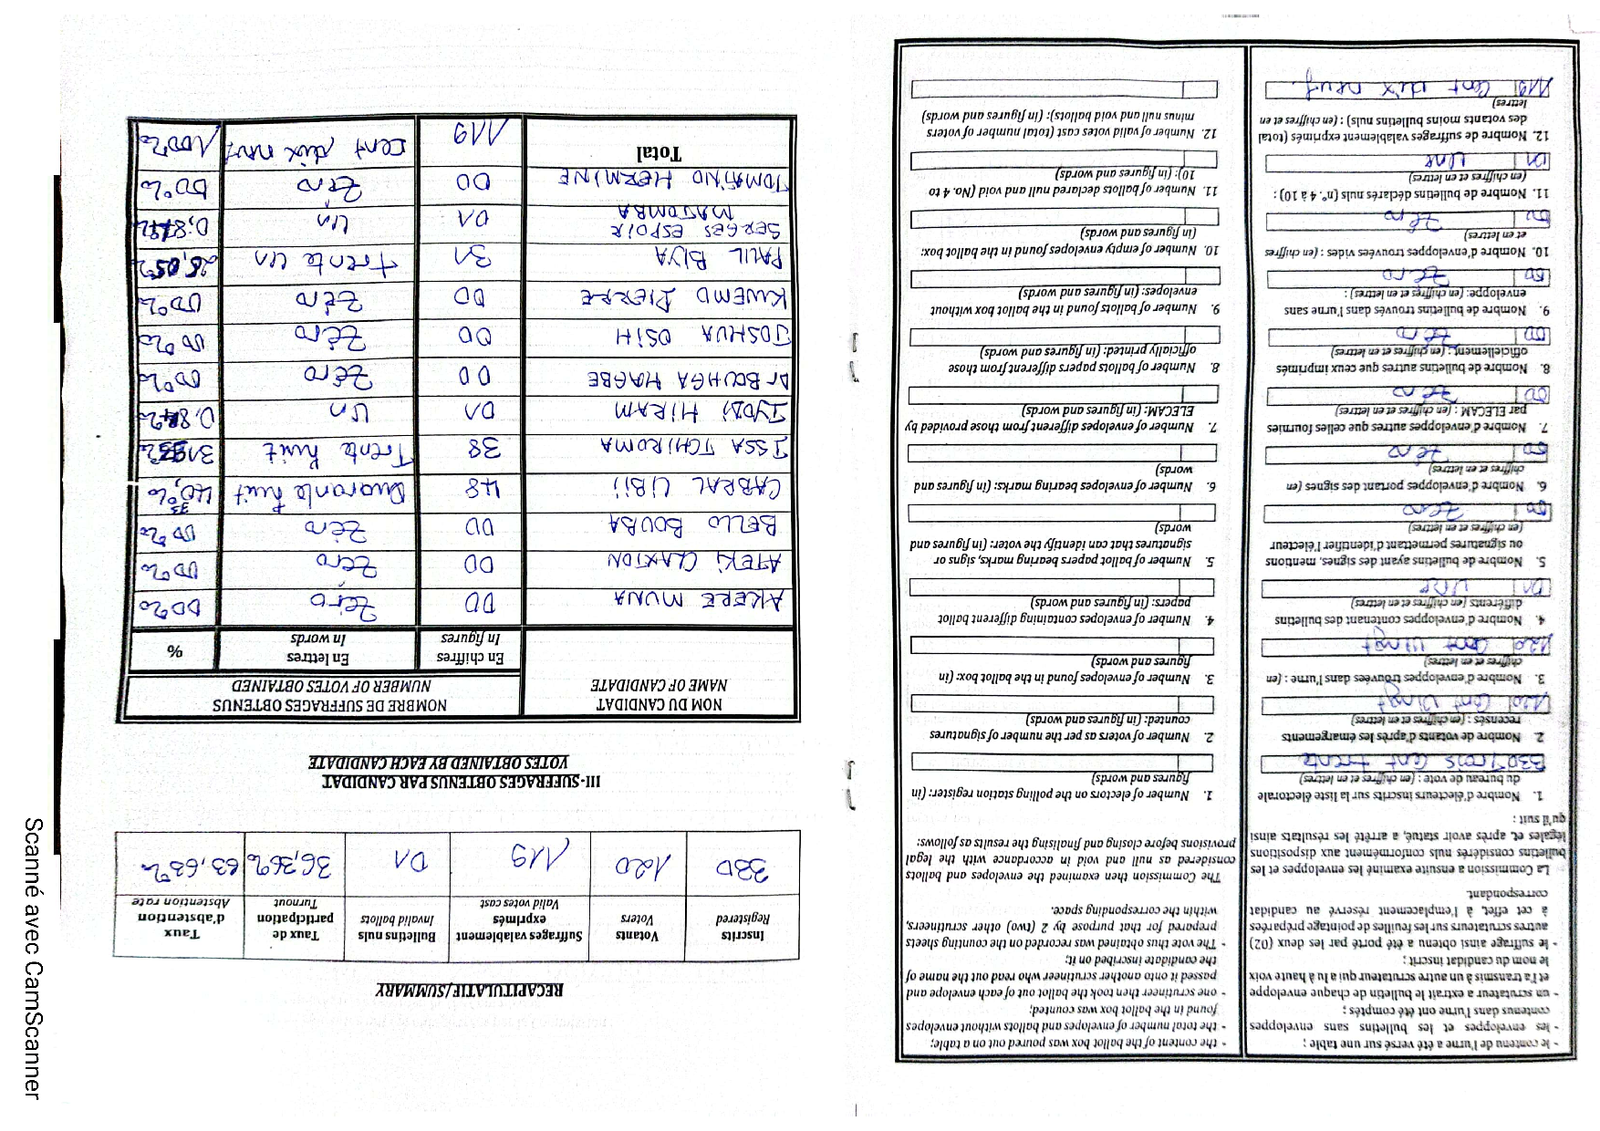 - le contenu de l'urne a été versé sur une table ;
- les enveloppes et les bulletins sans enveloppes
contenus dans l'urne ont été comptés ;
- un scrutateur a extrait le bulletin de chaque enveloppe
et l'a transmis à un autre scrutateur qui a lu à haute voix
le nom du candidat inscrit ;
- le suffrage ainsi obtenu a été porté par les deux (02)
autres scrutateurs sur les feuilles de pointage préparées
à cet effet, à l'emplacement réservé au candidat
correspondant.
La Commission a ensuite examiné les enveloppes et les
bulletins considérés nuls conformément aux dispositions
légales et, après avoir statué, a arrêté les résultats ainsi
qu'il suit :
1. Nombre d'électeurs inscrits sur la liste électorale
du bureau de vote : (en chiffres et en lettres)
330 Trois cent trente
2. Nombre de votants d'après les émargements
recensés : (en chiffres et en lettres)
120 Cent vingt
3. Nombre d'enveloppes trouvées dans l'urne : (en
chiffres et en lettres)
120 Cent vingt
4. Nombre d'enveloppes contenant des bulletins
différents (en chiffres et en lettres)
01 Une
5. Nombre de bulletins ayant des signes, mentions
ou signatures permettant d'identifier l'électeur
(en chiffres et en lettres)
00 Zéro
6. Nombre d'enveloppes portant des signes (en
chiffres et en lettres)
00 Zéro
7. Nombre d'enveloppes autres que celles fournies
par ELECAM : (en chiffres et en lettres)
00 Zéro
8. Nombre de bulletins autres que ceux imprimés
officiellement : (en chiffres et en lettres)
00 Zéro
9. Nombre de bulletins trouvés dans l'urne sans
enveloppe: (en chiffres et en lettres) :
00 Zéro
10. Nombre d'enveloppes trouvées vides : (en chiffres
et en lettres)
00 Zéro
11. Nombre de bulletins déclarés nuls (n°. 4 à 10) :
(en chiffres et en lettres)
01 Une
12. Nombre de suffrages valablement exprimés (total
des votants moins bulletins nuls) : (en chiffres et en
lettres)
119 Cent dix neuf
- the content of the ballot box was poured out on a table;
- the total number of envelopes and ballots without envelopes
found in the ballot box was counted;
- one scrutineer then took the ballot out of each envelope and
passed it onto another scrutineer who read out the name of
the candidate inscribed on it;
- The vote thus obtained was recorded on the counting sheets
prepared for that purpose by 2 (two) other scrutineers,
within the corresponding space.
The Commission then examined the envelopes and ballots
considered as null and void in accordance with the legal
provisions before closing and finalising the results as follows:
1. Number of electors on the polling station register: (in
figures and words)
2. Number of voters as per the number of signatures
counted: (in figures and words)
3. Number of envelopes found in the ballot box: (in
figures and words)
4. Number of envelopes containing different ballot
papers: (in figures and words)
5. Number of ballot papers bearing marks, signs or
signatures that can identify the voter: (in figures and
words)
6. Number of envelopes bearing marks: (in figures and
words)
7. Number of envelopes different from those provided by
ELECAM: (in figures and words)
8. Number of ballots papers different from those
officially printed: (in figures and words)
9. Number of ballots found in the ballot box without
envelopes: (in figures and words)
10. Number of empty envelopes found in the ballot box:
(in figures and words)
11. Number of ballots declared null and void (No. 4 to
10): (in figures and words)
12. Number of valid votes cast (total number of voters
minus null and void ballots): (in figures and words)
RECAPITULATIF/SUMMARY
Inscrits Registered | Votants Voters | Suffrages valablement exprimés Valid votes cast | Bulletins nuls Invalid ballots | Taux de participation Turnout | Taux d'abstention Abstention rate
330 | 120 | 119 | 01 | 36,36% | 63,63%
III- SUFFRAGES OBTENUS PAR CANDIDAT
VOTES OBTAINED BY EACH CANDIDATE
NOM DU CANDIDAT NAME OF CANDIDATE | NOMBRE DE SUFFRAGES OBTENUS NUMBER OF VOTES OBTAINED
En chiffres In figures | En lettres In words | %
AKERE MUNA | 00 | Zéro | 00%
ATEKI CLAXTON | 00 | Zéro | 00%
BELLO BOUBA | 00 | Zéro | 00%
CABRAL LIBII | 48 | Quarante huit | 40,33%
ISSA TCHIROMA | 38 | Trente huit
IYODI HIRAM | 01 | Un | 0,84%
Dr BOUHGA HAGBE | 00 | Zéro | 00%
JOSHUA OSIH | 00 | Zéro | 00%
KWEMO PIERRE | 00 | Zéro | 00%
PAUL BIYA | 31 | Trente un | 26,05%
SERGES ESPOIR MATOMBA | 01 | Un | 0,84%
TOMAÏNO HERMINE | 00 | Zéro | 00%
Total | 119 | Cent dix neuf | 100%
Scanné avec CamScanner